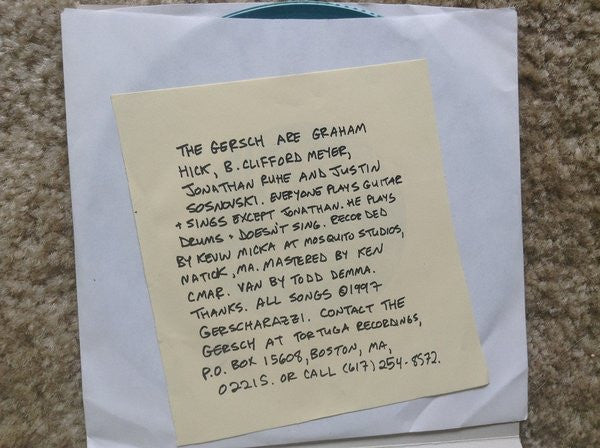 THE GERSCH ARE GRAHAM
HICK, B. CLIFFORD MEYER,
JONATHAN RUHE AND JUSTIN
SOSNOVSKI. EVERYONE PLAYS GUITAR
+ SINGS EXCEPT JONATHAN. HE PLAYS
DRUMS + DOESN'T SING. RECORDED
BY KEVIN MICKA AT MOSQUITO STUDIOS,
NATICK, MA. MASTERED BY KEN
CMAR. VAN BY TODD DEMMA.
THANKS. ALL SONGS ©1997
GERSCHARAZZI. CONTACT THE
GERSCH AT TORTUGA RECORDINGS,
P.O. BOX 15608, BOSTON, MA,
02215. OR CALL (617) 254-8572.